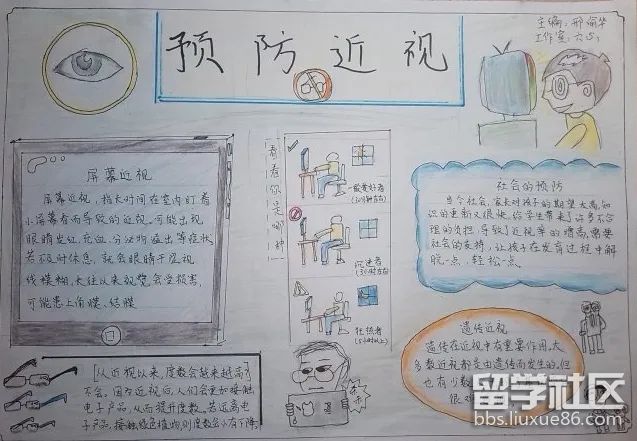 预防近视
主编:邢
工作室:六(5)
屏幕近视
屏幕近视,指长时间在室内盯着
小屏幕看而导致的近视。可能出现
眼睛发红,充血,分泌物溢出等症状
若不及时休息,就会眼睛干涩视
线模糊,长往以来视觉会受损害,
可能患上角膜、结膜
看看你是哪种
一般爱好者
沉迷者
狂热者
社会的预防
当个社会,家长对孩子的期望太高,知
识的更新又很快,你学生带来了许多不合
理的负担,导致了近视率的增高,需要
社会的支持,让孩子在发育过程中解
脱一点,轻松一点。
遗传近视
遗传在近视中有重要作用。大
多数近视都是由遗传而发生的,但
也有少数
很难
[从近视以来,度数会越来越高?
不会,因为近视后,人们会更加接触
电子产品,从而提升度数。若远离电
子产品,接触绿色植物,则度数会小有下降。
留学社区
bbs.liuxue86.com